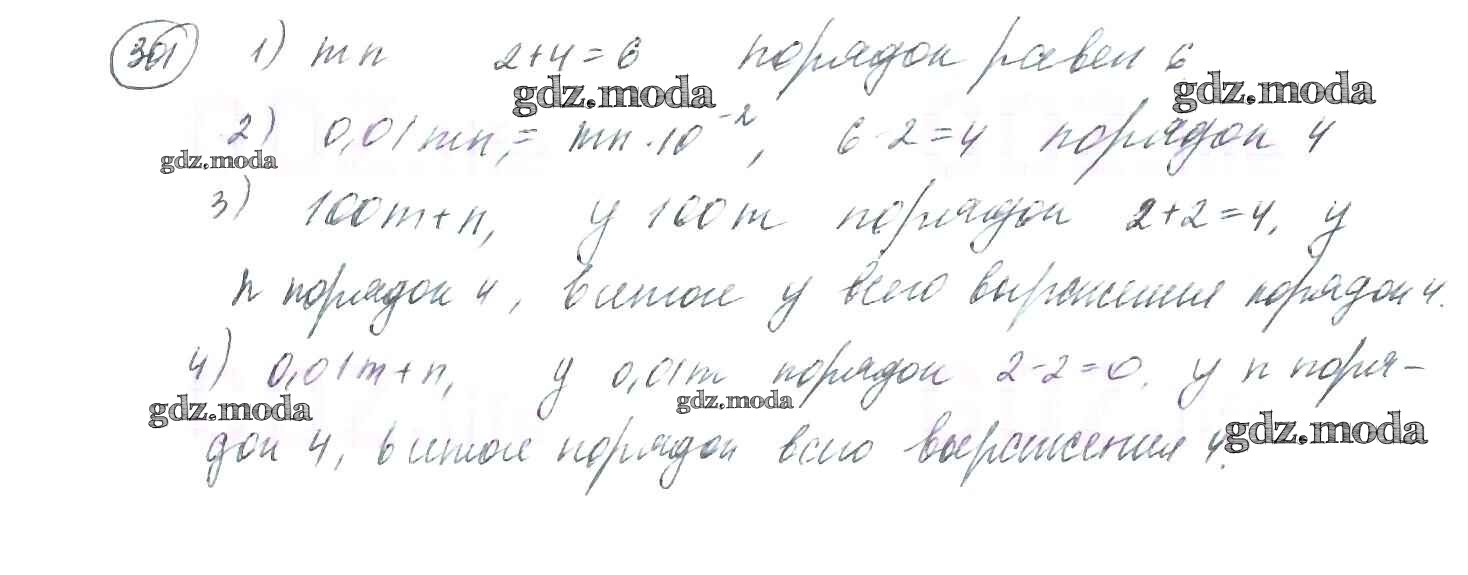 301 1) mn 2+4=6 порядок равен 6
gdz.moda gdz.moda
2) 0,01mn, = mn·10⁻², 6-2=4 порядок 4
gdz.moda
3) 100m+n, у 100m порядок 2+2=4, у
n порядок 4, в итоге у всего выражения порядок 4.
4) 0,01m+n, у 0,01m порядок 2-2=0. у n поря-
gdz.moda gdz.moda
док 4, в итоге порядок всего выражения 4.
gdz.moda